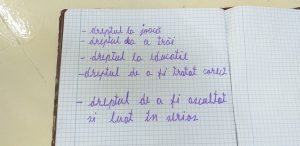 - dreptul la joacă
- dreptul de a trăi
- dreptul la educatie
- dreptul de a fi tratat corect
- dreptul de a fi ascultat
si luat în serios